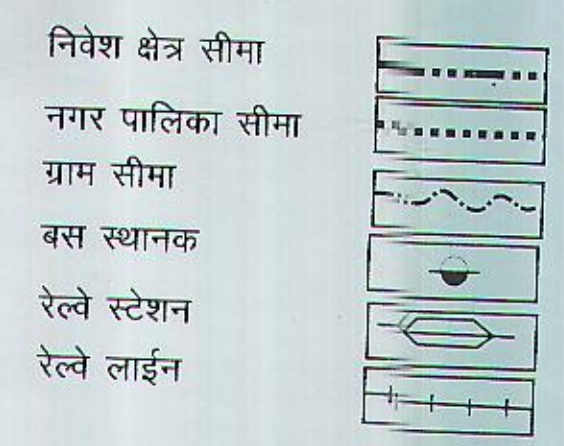 निवेश क्षेत्र सीमा
नगर पालिका सीमा
ग्राम सीमा
बस स्थानक
रेल्वे स्टेशन
रेल्वे लाईन